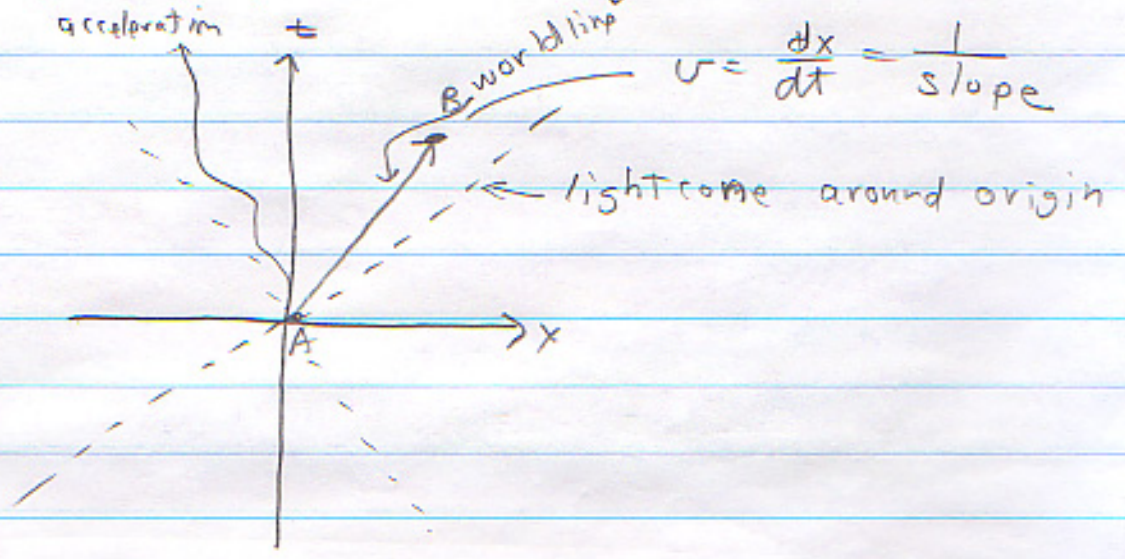 acceleration
t
B worldline
v = dx/dt = 1/slope
lightcone around origin
A
x